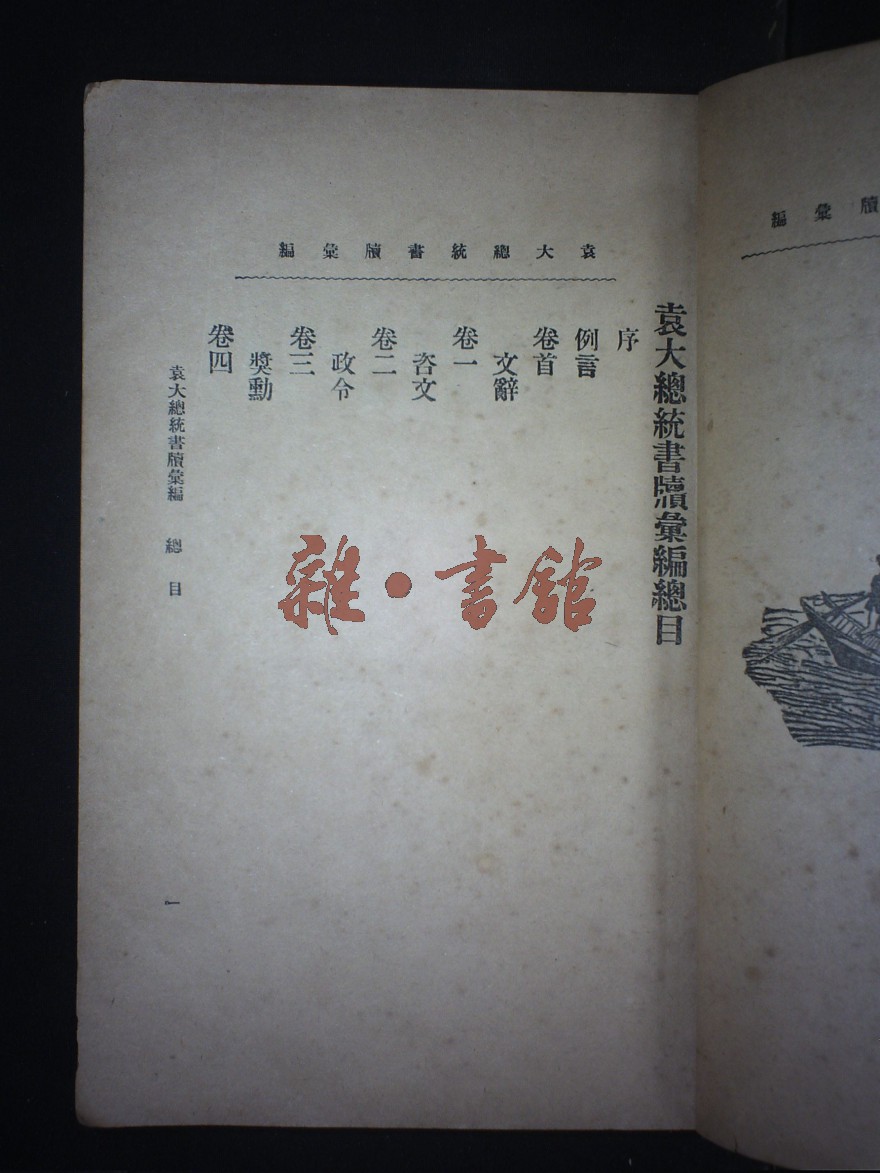 袁大總統書牘彙編
袁大總統書牘彙編總目
序
例言
卷首
文辭
卷一
咨文
卷二
政令
卷三
獎勳
卷四
袁大總統書牘彙編 總目
一
雜·書館
牘彙編